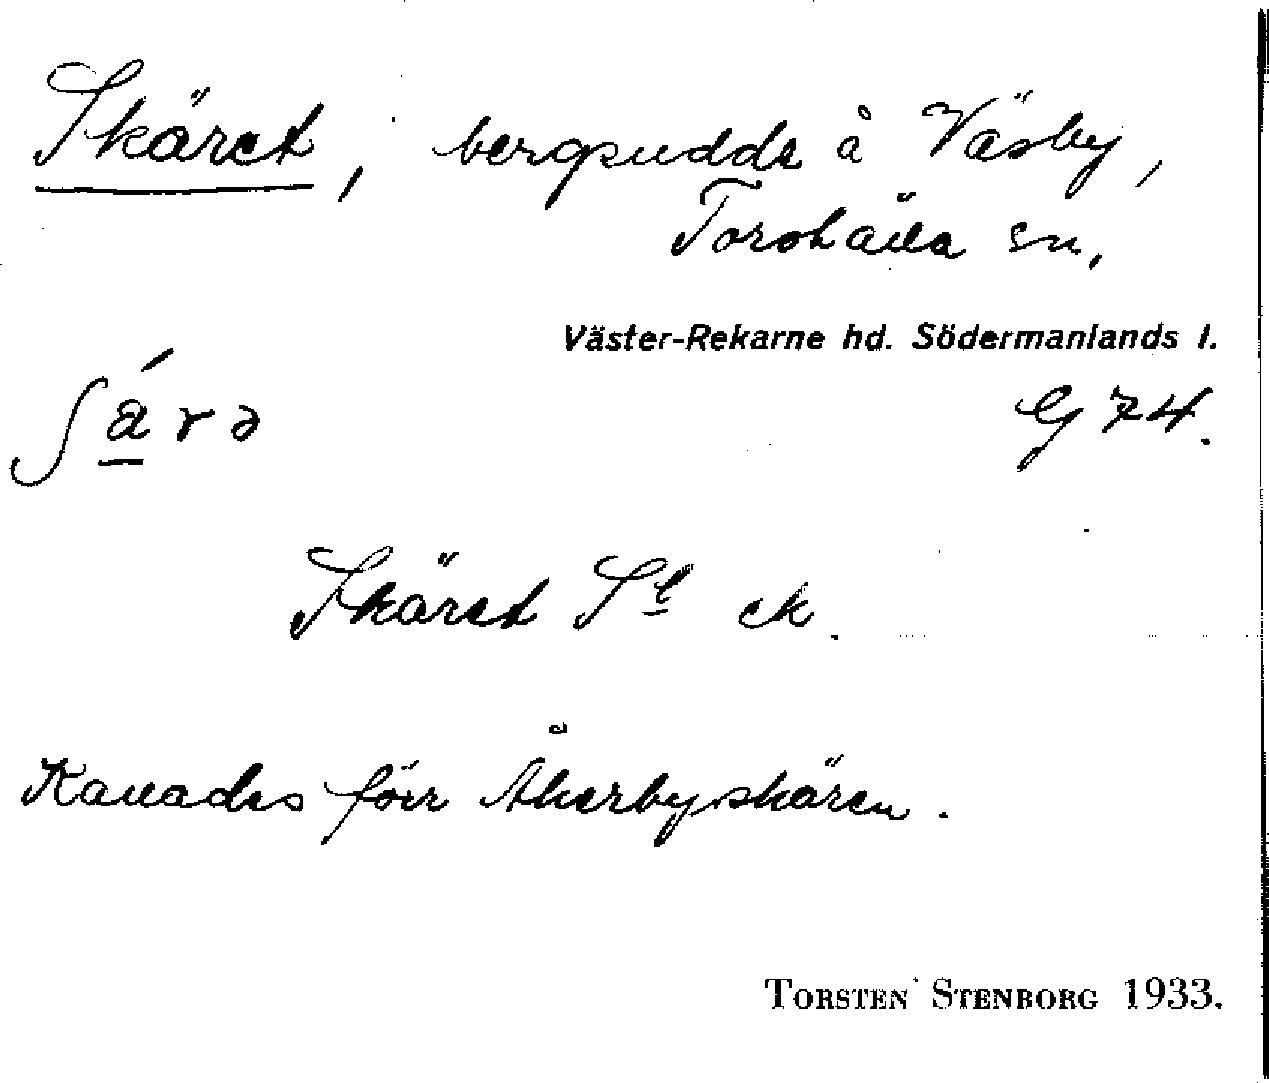 Skäret, bergsudde å Väsby,
Torshälla sn,
Väster-Rekarne hd. Södermanlands l.
ʃá̱rə G 74.
Skäret St ek.
Kallades för Åkerbyskären.
TORSTEN STENBORG 1933.